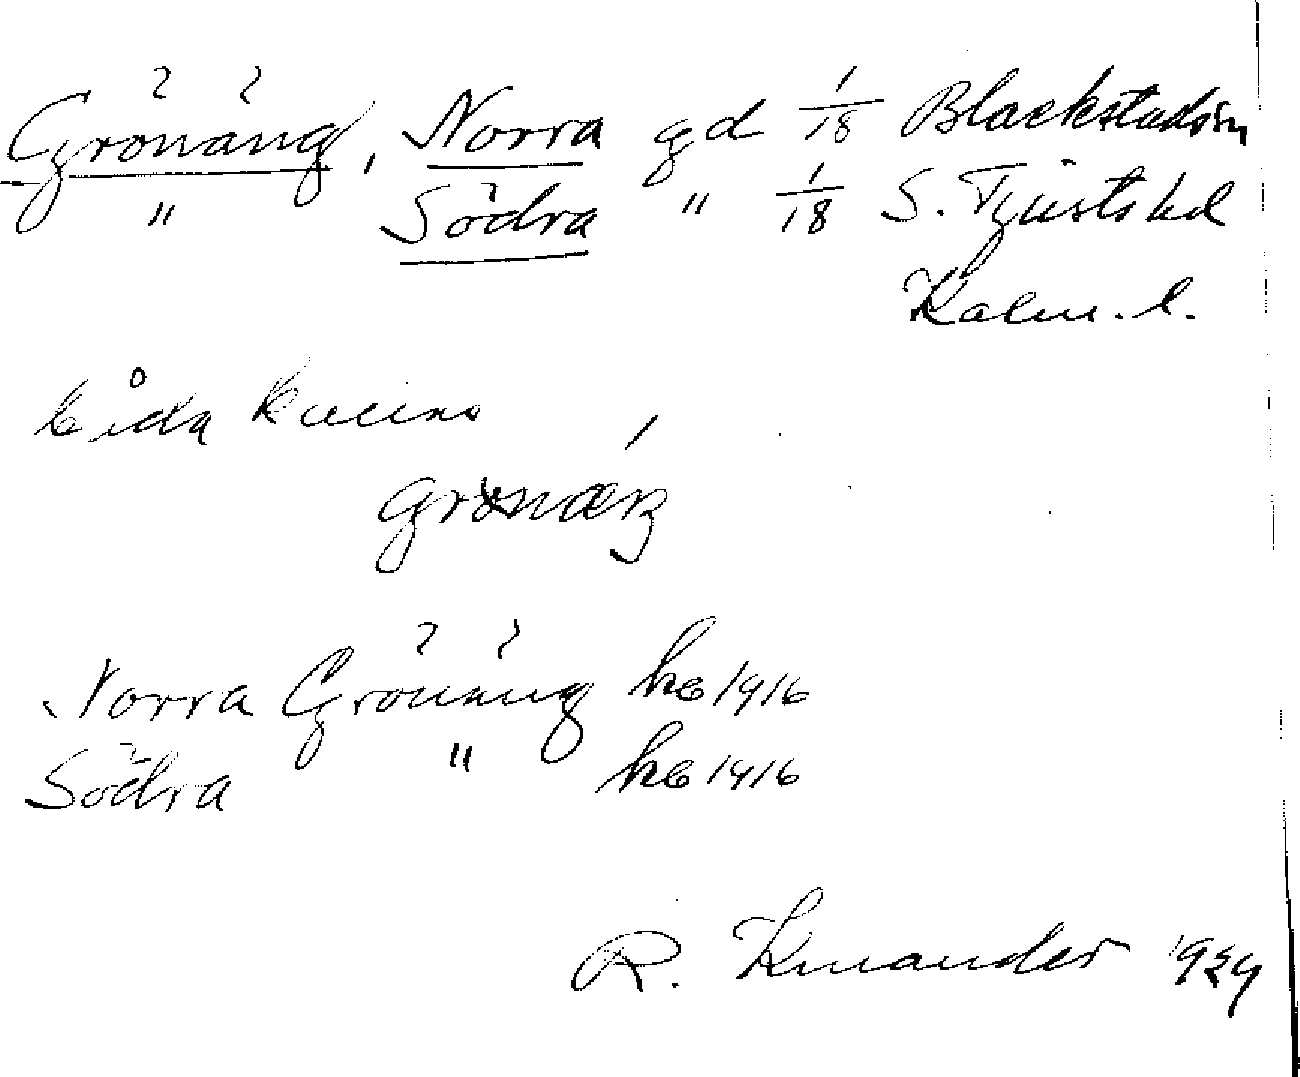 Grönäng, Norra gd 1/18 Blackstad sn
" Södra " 1/18 S. Tjust hd
Kalm. l.
båda kallas
Norra Grönäng kb 1916
Södra " kb 1916
R. Kinander 1929